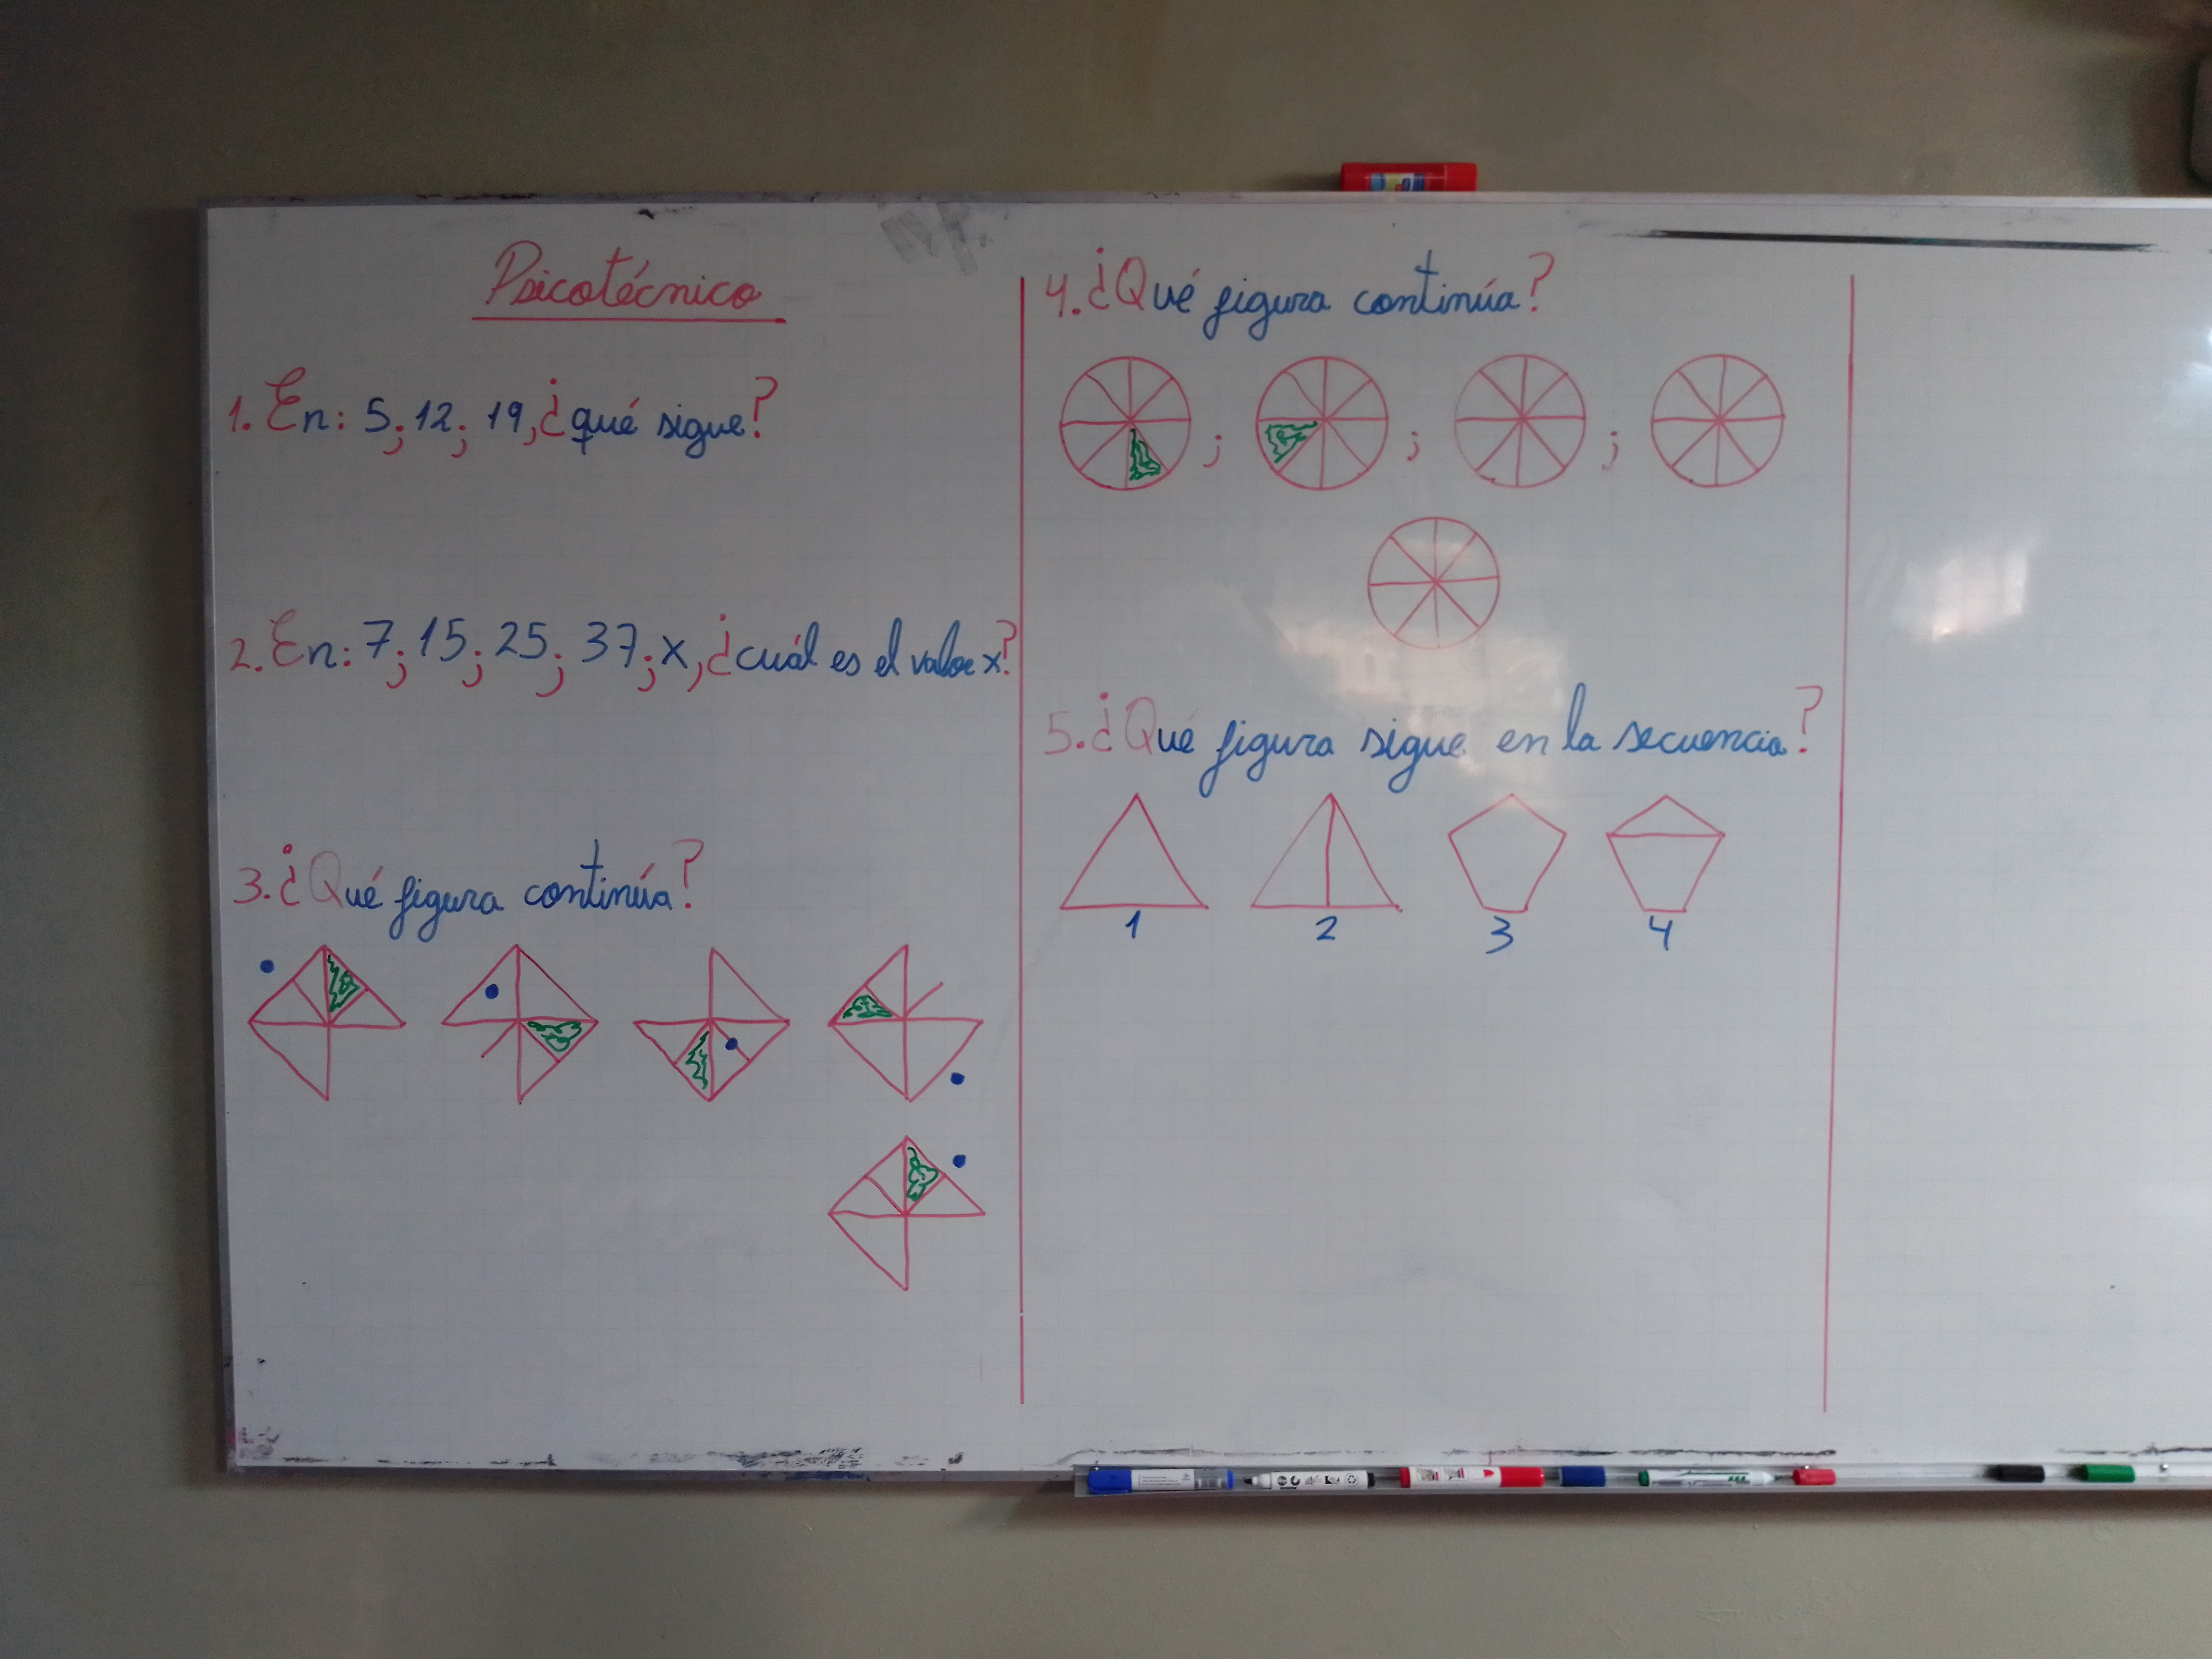 Psicotécnico
1. En: 5; 12; 19, ¿qué sigue?
2. En: 7; 15; 25; 37; x, ¿cuál es el valor x?
3. ¿Qué figura continúa?
4. ¿Qué figura continúa?
; ; ;
5. ¿Qué figura sigue en la secuencia?
1 2 3 4